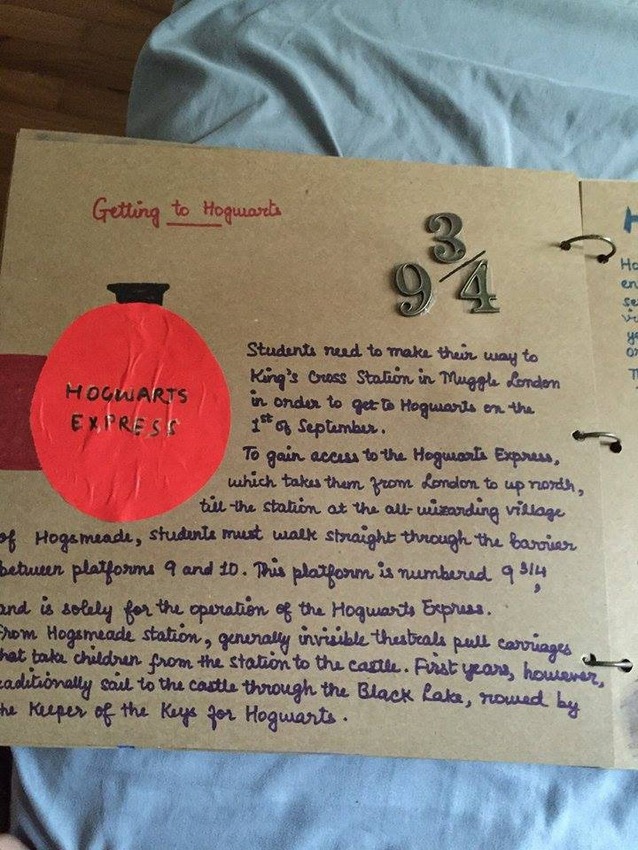 Getting to Hogwarts
9 3/4
HOGWARTS
EXPRESS
Students need to make their way to
King's Cross Station in Muggle London
in order to get to Hogwarts on the
1st of September.
To gain access to the Hogwarts Express,
which takes them from London to up north,
till the station at the all-wizarding village
of Hogsmeade, students must walk straight through the barrier
between platforms 9 and 10. This platform is numbered 9 3/4,
and is solely for the operation of the Hogwarts Express.
From Hogsmeade station, generally invisible thestrals pull carriages
that take children from the station to the castle. First years, however,
traditionally sail to the castle through the Black Lake, rowed by
the Keeper of the Keys for Hogwarts.